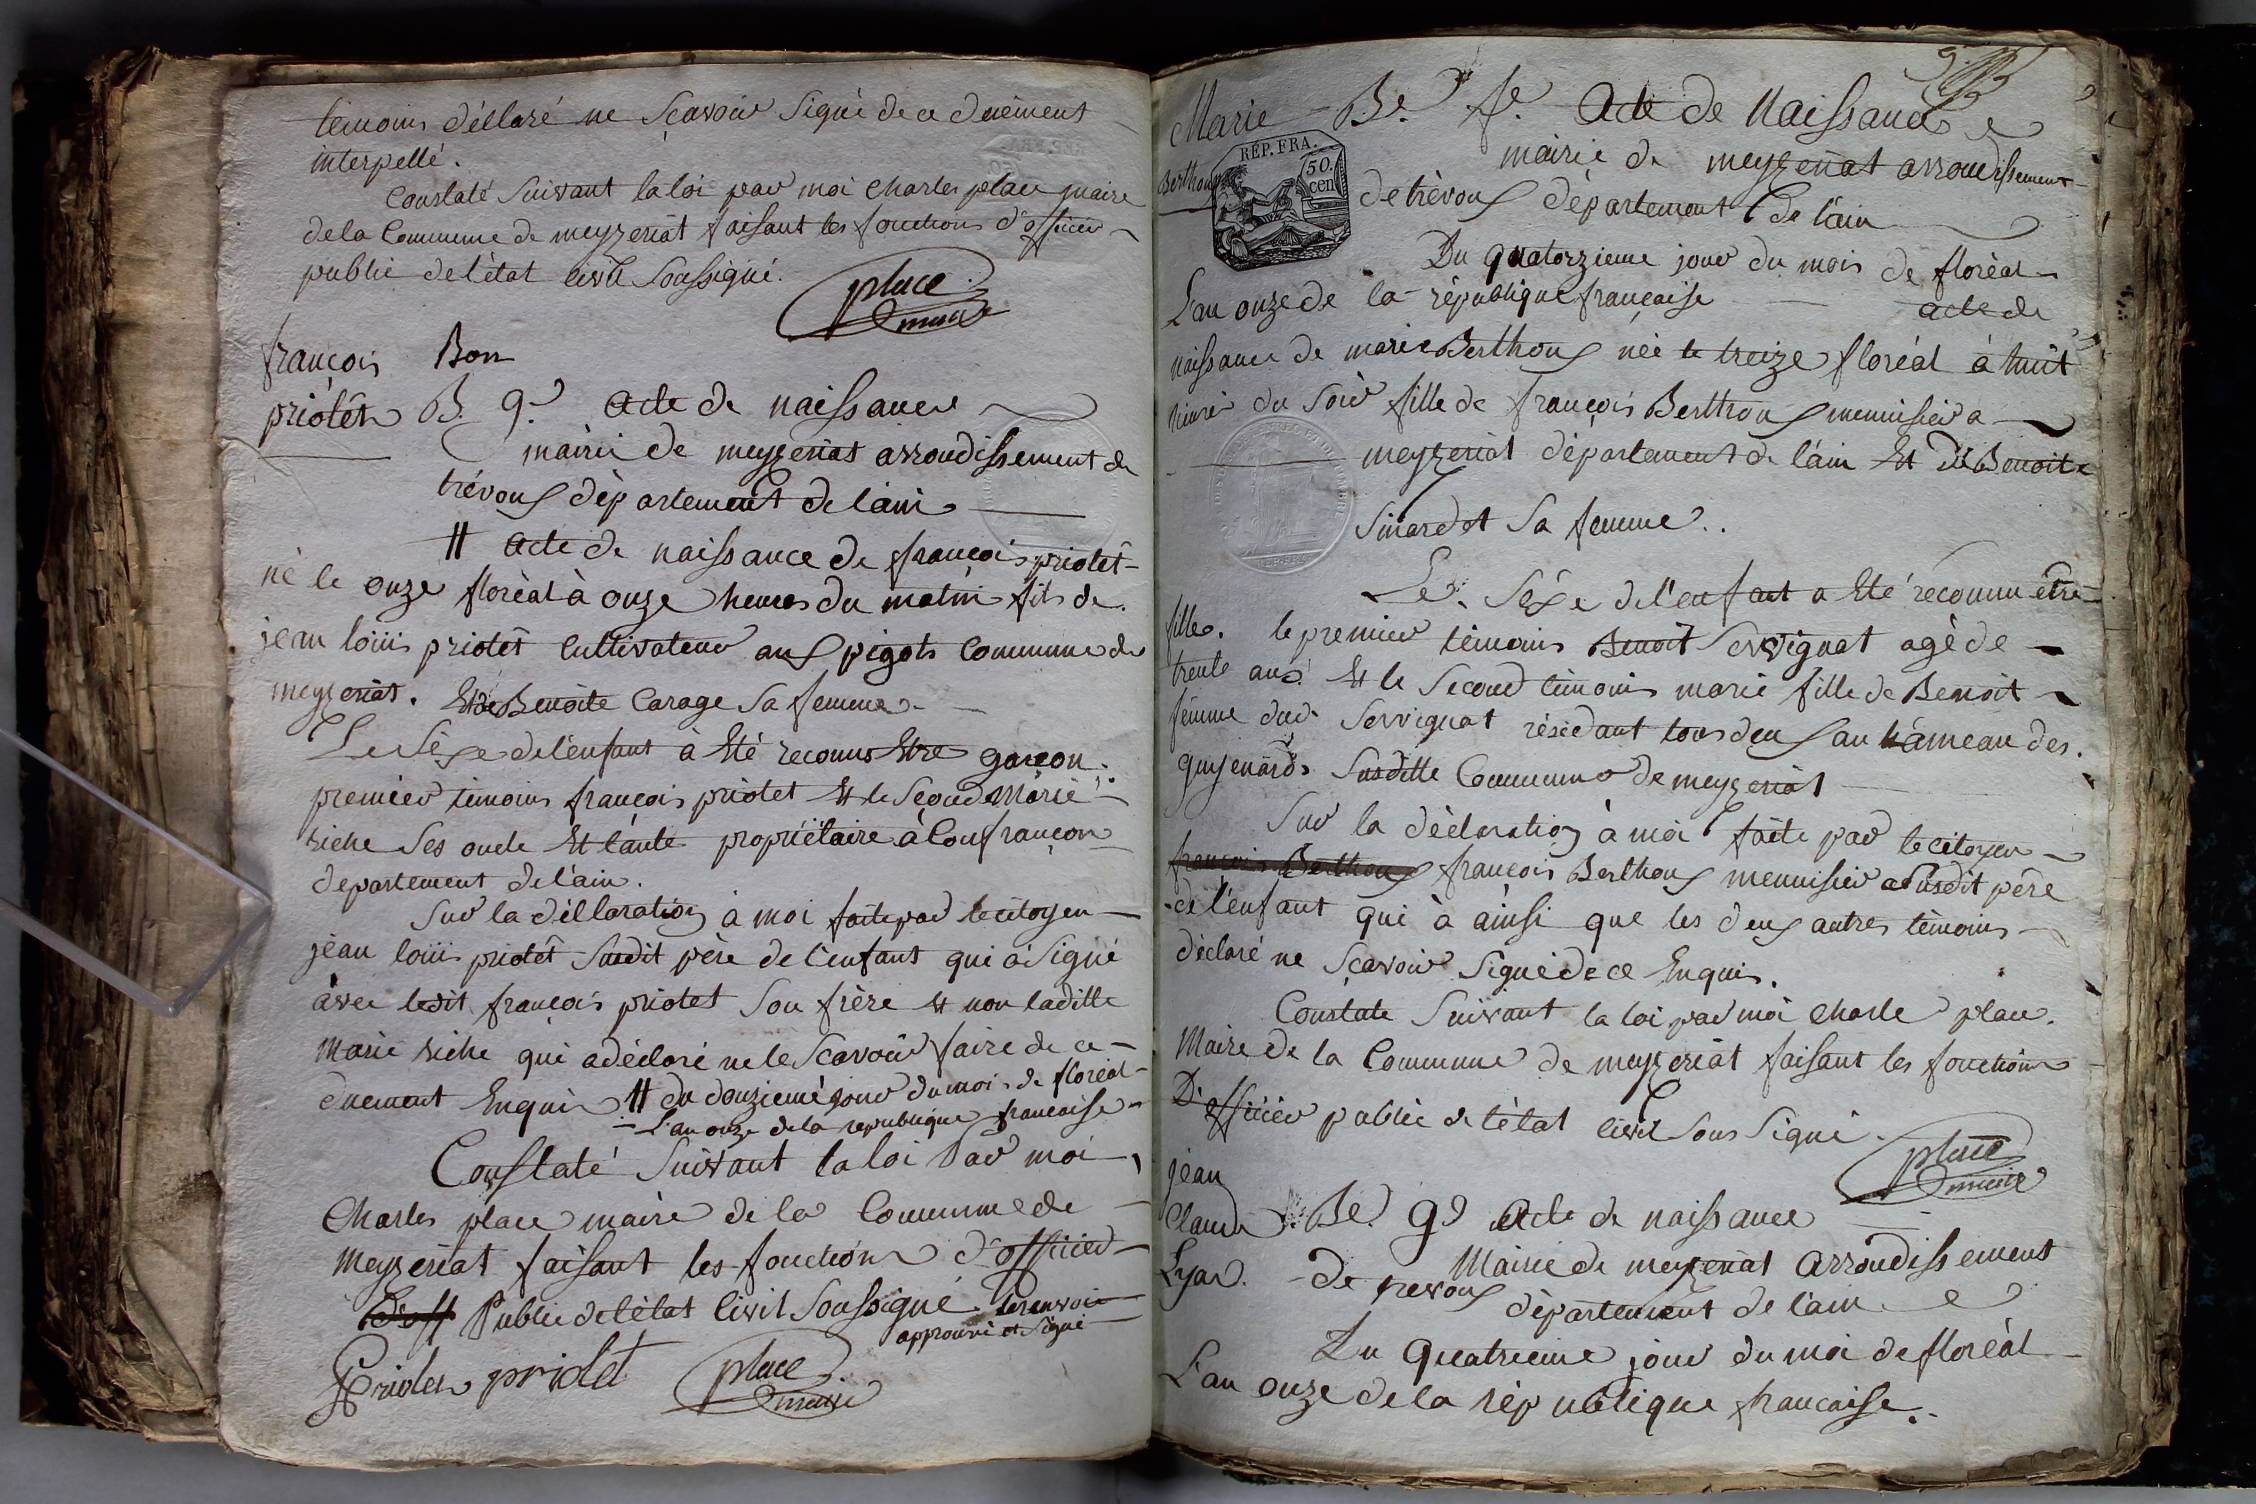 témoins déllaré ne sçavoir signé de ce duêment
interpellé.
Constaté suivant la loi par moi Charles place maire
de la Commune de meyzeriat faisant les fonctions d'officier
public de l'état civil soussigné.
place
maire
françois Bon
priolet B. g.
acte de naissance
mairie de meyzeriat arrondissement de
trévoux département de l'ain
# acte de naissance de françois priolet
né le onze floréal à onze heures du matin fils de
jean louis priolet cultivateur aux pigots Commune de
meyzeriat. Et de Benoite Carage sa femme
Le sèxe de l'enfant à été reconnu être garçon.
premier témoins françois priolet et le second Marie
riche ses oncle et tante propriétaire à Confrançon
département de l'ain.
Sur la déllaration à moi faite par le citoyen
jéan louis priolet susdit père de l'enfant qui à signé
avec ledit françois priolet son frère et non laditte
Marie riche qui a déclaré ne le sçavoir faire de ce
duement Enquis # du douzieme jour du mois de floréal
L'an onze de la république francaise
Constaté suivant la loi par moi
Charles place maire de la Commune de
meyzeriat faisant les fonctions d'officier
d'off Public de l'état Civil soussigné. le renvoi
approuvé et signé
priolet
place
maire
Marie Be. fe. Acte de Naissance
Berthoux
REP. FRA.
50.
cen
mairie de meyzeriat arrondissement
de trévoux département de l'ain
Du quatorzieme jour du mois de floréal
L'an onze de la république française acte de
naissance de marie Berthoux née le treize floréal à huit
heures du soir fille de françois Berthoux menuisier a
meyzeriat département de l'ain Et de Benoite
sinardet sa femme..
Le sèxe de l'enfant a été reconnu être
fille. le premier témoins Benoit servignat agé de
trente ans Et le second témoins marie fille de Benoit
femme dud. servignat résidant tous deux au hameau des
guyenards susditte Commune de meyzeriat
Sur la déclaration à moi faite par le citoyen
françois Berthoux françois Berthoux menuisier susdit père
de l'enfant qui à ainsi que les deux autres témoins
déclaré ne sçavoir signé de ce Enquis.
Constate suivant la loi par moi Charle place.
Maire de la Commune de meyzeriat faisant les fonctions
D'officier public de l'état civil sous signé.
place
maire
jéan
Claude Be. gs acte de naissance
Lyar.
Mairie de meyzeriat arrondissement
de trevoux département de l'ain
Du quatrieme jour du moi de floréal
L'an onze de la république francaise.